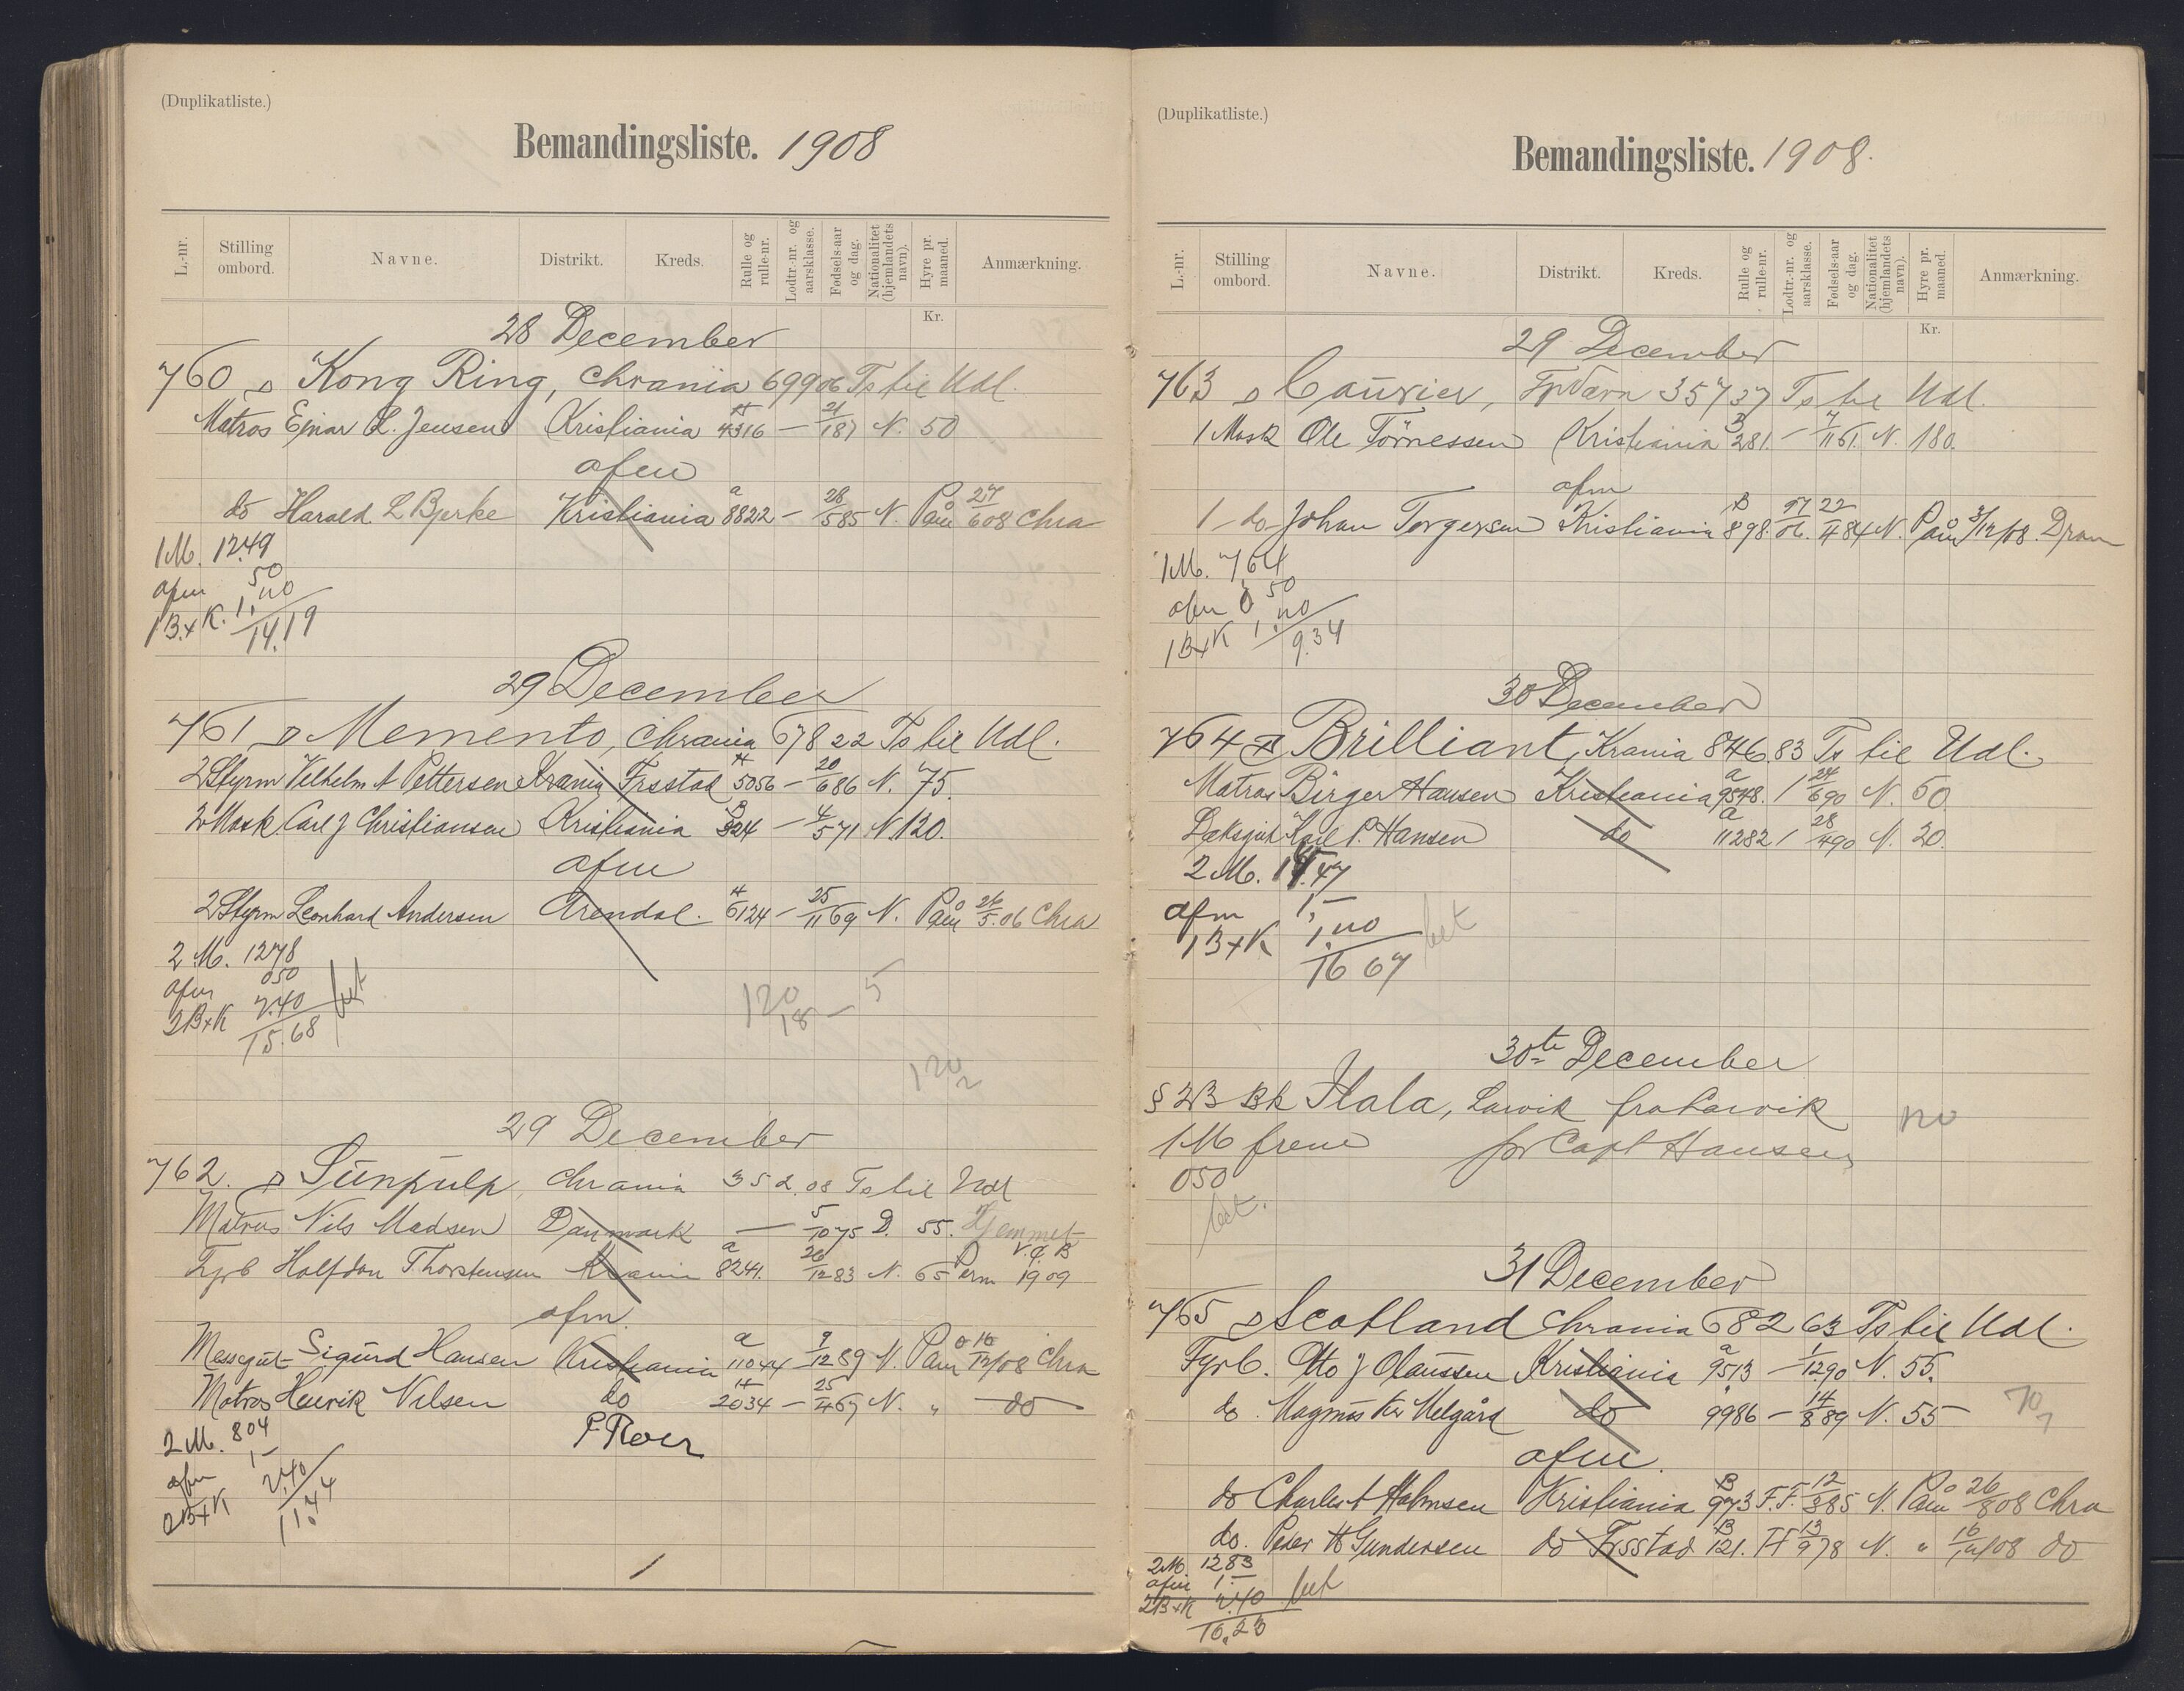 (Duplikatliste.)
Bemandingsliste. 1908
L.-nr. Stilling ombord. Navne. Distrikt. Kreds. Rulle og rulle-nr. Lodtr.-nr. og aarsklasse. Fødsels-aar og dag. Nationalitet (hjemlandets navn). Hyre pr. maaned. Anmærkning.
Kr.
28 December
760 D Kong Ring, Chrania 699 06 Ts til Udl.
Matros Ejnar L. Jensen Kristiania H 4316 — 21/1 87 N. 50
afm
do Harald L Bjerke Kristiania a 8822 — 28/5 85 N. Påm 27/6 08 Chra
1 M. 12.49
afm 50
1 B+K. 1,20
14.19
29 December
761 D Memento, Chrania 678 22 Ts til Udl.
2 Styrm Vilhelm A Pettersen Krania Frsstad H 5056 — 20/6 86 N. 75
2 Mask Carl J Christiansen Kristiania B 324 — 4/5 71 N. 120.
afm
2 Styrm Leonhard Andersen Arendal. H 6124 — 25/11 69 N. Påm 26/5. 06 Chra
2 M. 12.78
afm 050
2 B+K 2.40
15.68 bet
120
18 — 5
120
2
29 December
762. D Sunpulp, Chrania 352.08 Ts til Udl
Matros Nils Madsen Danmark — 5/10 75 D. 55. Hjemmet
Fyrb Halfdan Thorstensen Krania a 8241. 26/12 83 N. 65 Perm V.Ø.B 1909
afm.
Messegut Sigurd Hansen Kristiania a 11044 — 9/12 89 N. Påm 16/12/08 Chra
Matros Henrik Nilsen do H 2034 — 25/4 69 N. " do
2 M. 804
afm 1 —
2 B+K 2.40
11.44
(Duplikatliste.)
Bemandingsliste. 1908.
L.-nr. Stilling ombord. Navne. Distrikt. Kreds. Rulle og rulle-nr. Lodtr.-nr. og aarsklasse. Fødsels-aar og dag. Nationalitet (hjemlandets navn). Hyre pr. maaned. Anmærkning.
Kr.
29 December
763 D Courier, 357 37 Ts til Udl.
1 Mask Ole Tönnessen Kristiania B 281. — 7/11 61. N. 180.
afm
1 do Johan Torgersen Kristiania B 898. 97/06. 22/11 84 N. Påm 3/12/08. Dram
1 M. 764
afm 0 50
1 B+K 1.20
9.34
30 December
764 D Brilliant, Krania 846.83 Ts til Udl.
Matros Birger Hansen Kristiania a 9548. / 24/6 90 N. 60.
Dæksgut Karl P. Hansen do a 11282 / 28/4 90 N. 20.
2 M. 14.47
afm 1, —
1 B+K 1,20
16 67 bet
30te December
§ 2B Bk Itala, Larvik fra Larvik
1 M frem for Capt Hansen
050
bet.
31 December
765 D Scotland Chrania 682 63 Ts til Udl.
Fyrb. Otto J Olaussen Kristiania a 9513 — 1/12 90 N. 55.
do. Magnus Kr Melgård do 9986 — 14/8 89 N. 55
70
afm.
do Charles A Halmsen Kristiania B 973 F.F. 12/3 85 N. Påm 26/8 08 Chra
do. Peder H Gundersen do Frsstad B 121. FF 13/9 78 N. " 16/12/08 do
2 M. 12.83
afm 1.—
2 B+K 2.40 bet
16.23